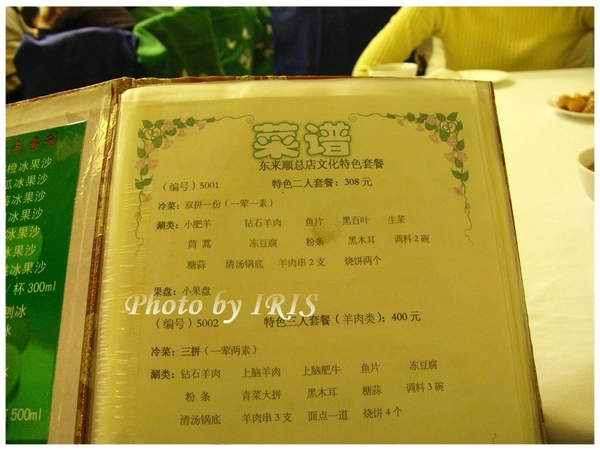 橙冰果沙
瓜冰果沙
冰果沙
冰果沙
冰果沙
冰果沙
冰果沙
/杯 300ml
刨冰
冰
500ml
菜谱
东来顺总店文化特色套餐
（编号）5001 特色二人套餐：308 元
冷菜：双拼一份（一荤一素）
涮类：小肥羊 钻石羊肉 鱼片 黑百叶 生菜
茼蒿 冻豆腐 粉条 黑木耳 调料 2 碗
糖蒜 清汤锅底 羊肉串 2 支 烧饼两个
果盘：小果盘
Photo by IRIS
（编号）5002 特色三人套餐（羊肉类）：400 元
冷菜：三拼（一荤两素）
涮类：钻石羊肉 上脑羊肉 上脑肥牛 鱼片 冻豆腐
粉条 青菜大拼 黑木耳 糖蒜 调料 3 碗
清汤锅底 羊肉串 3 支 面点一道 烧饼 4 个